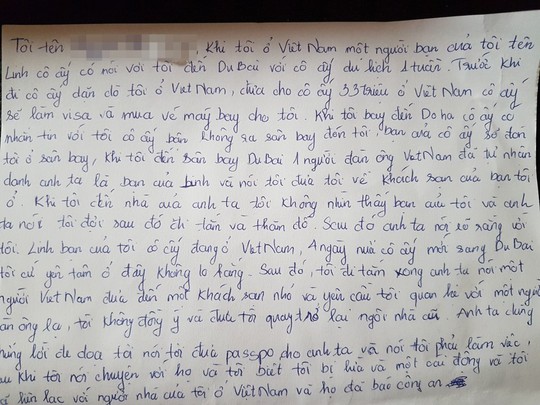 Tôi tên , Khi tôi ở Việt Nam một người bạn của tôi tên
Linh cô ấy có nói với tôi đến Du Bai với cô ấy du lịch 1 tuần. Trước khi
đi cô ấy dăn dò tôi ở Việt Nam, đưa cho cô ấy 33 triệu ở Việt Nam cô ấy
sẽ làm visa và mua vé máy bay cho tôi. Khi tôi bay đến Do ha cô ấy có
nhắn tin với tôi cô ấy bận không ra sân bay đón tôi bạn của cô ấy sẽ đón
tôi ở sân bay, Khi tôi đến sân bay Du Bai 1 người đàn ông Việt Nam đã tự nhân
danh anh ta là bạn của Linh và nói tôi đưa tôi về khách sạn của bạn tôi
ở. Khi tôi đến nhà của anh ta tôi không nhìn thấy bạn của tôi và anh
ta nói tôi đợi sau đó đi tắm và thăm dò. Sau đó anh ta nói rõ ràng với
tôi. Linh bạn của tôi cô ấy đang ở Việt Nam, 4 ngày nữa cô ấy mới sang Du Bai
tôi cứ yên tâm ở đây không lo lắng. Sau đó, tôi đi tắm xong anh ta nói một
người Việt Nam đưa đến một khách sạn nhỏ và yêu cầu tôi quan hệ với một người
đàn ông lạ, tôi không đồng ý và đưa tôi quay trở lại ngôi nhà cũ. Anh ta dùng
lời đe doạ tôi nói tôi đưa passpo cho anh ta và nói tôi phải làm việc,
sau khi tôi nói chuyện với họ và tôi biết tôi bị lừa và một cái động và tôi
liên lạc với người nhà của tôi ở Việt Nam và họ đã báo công an